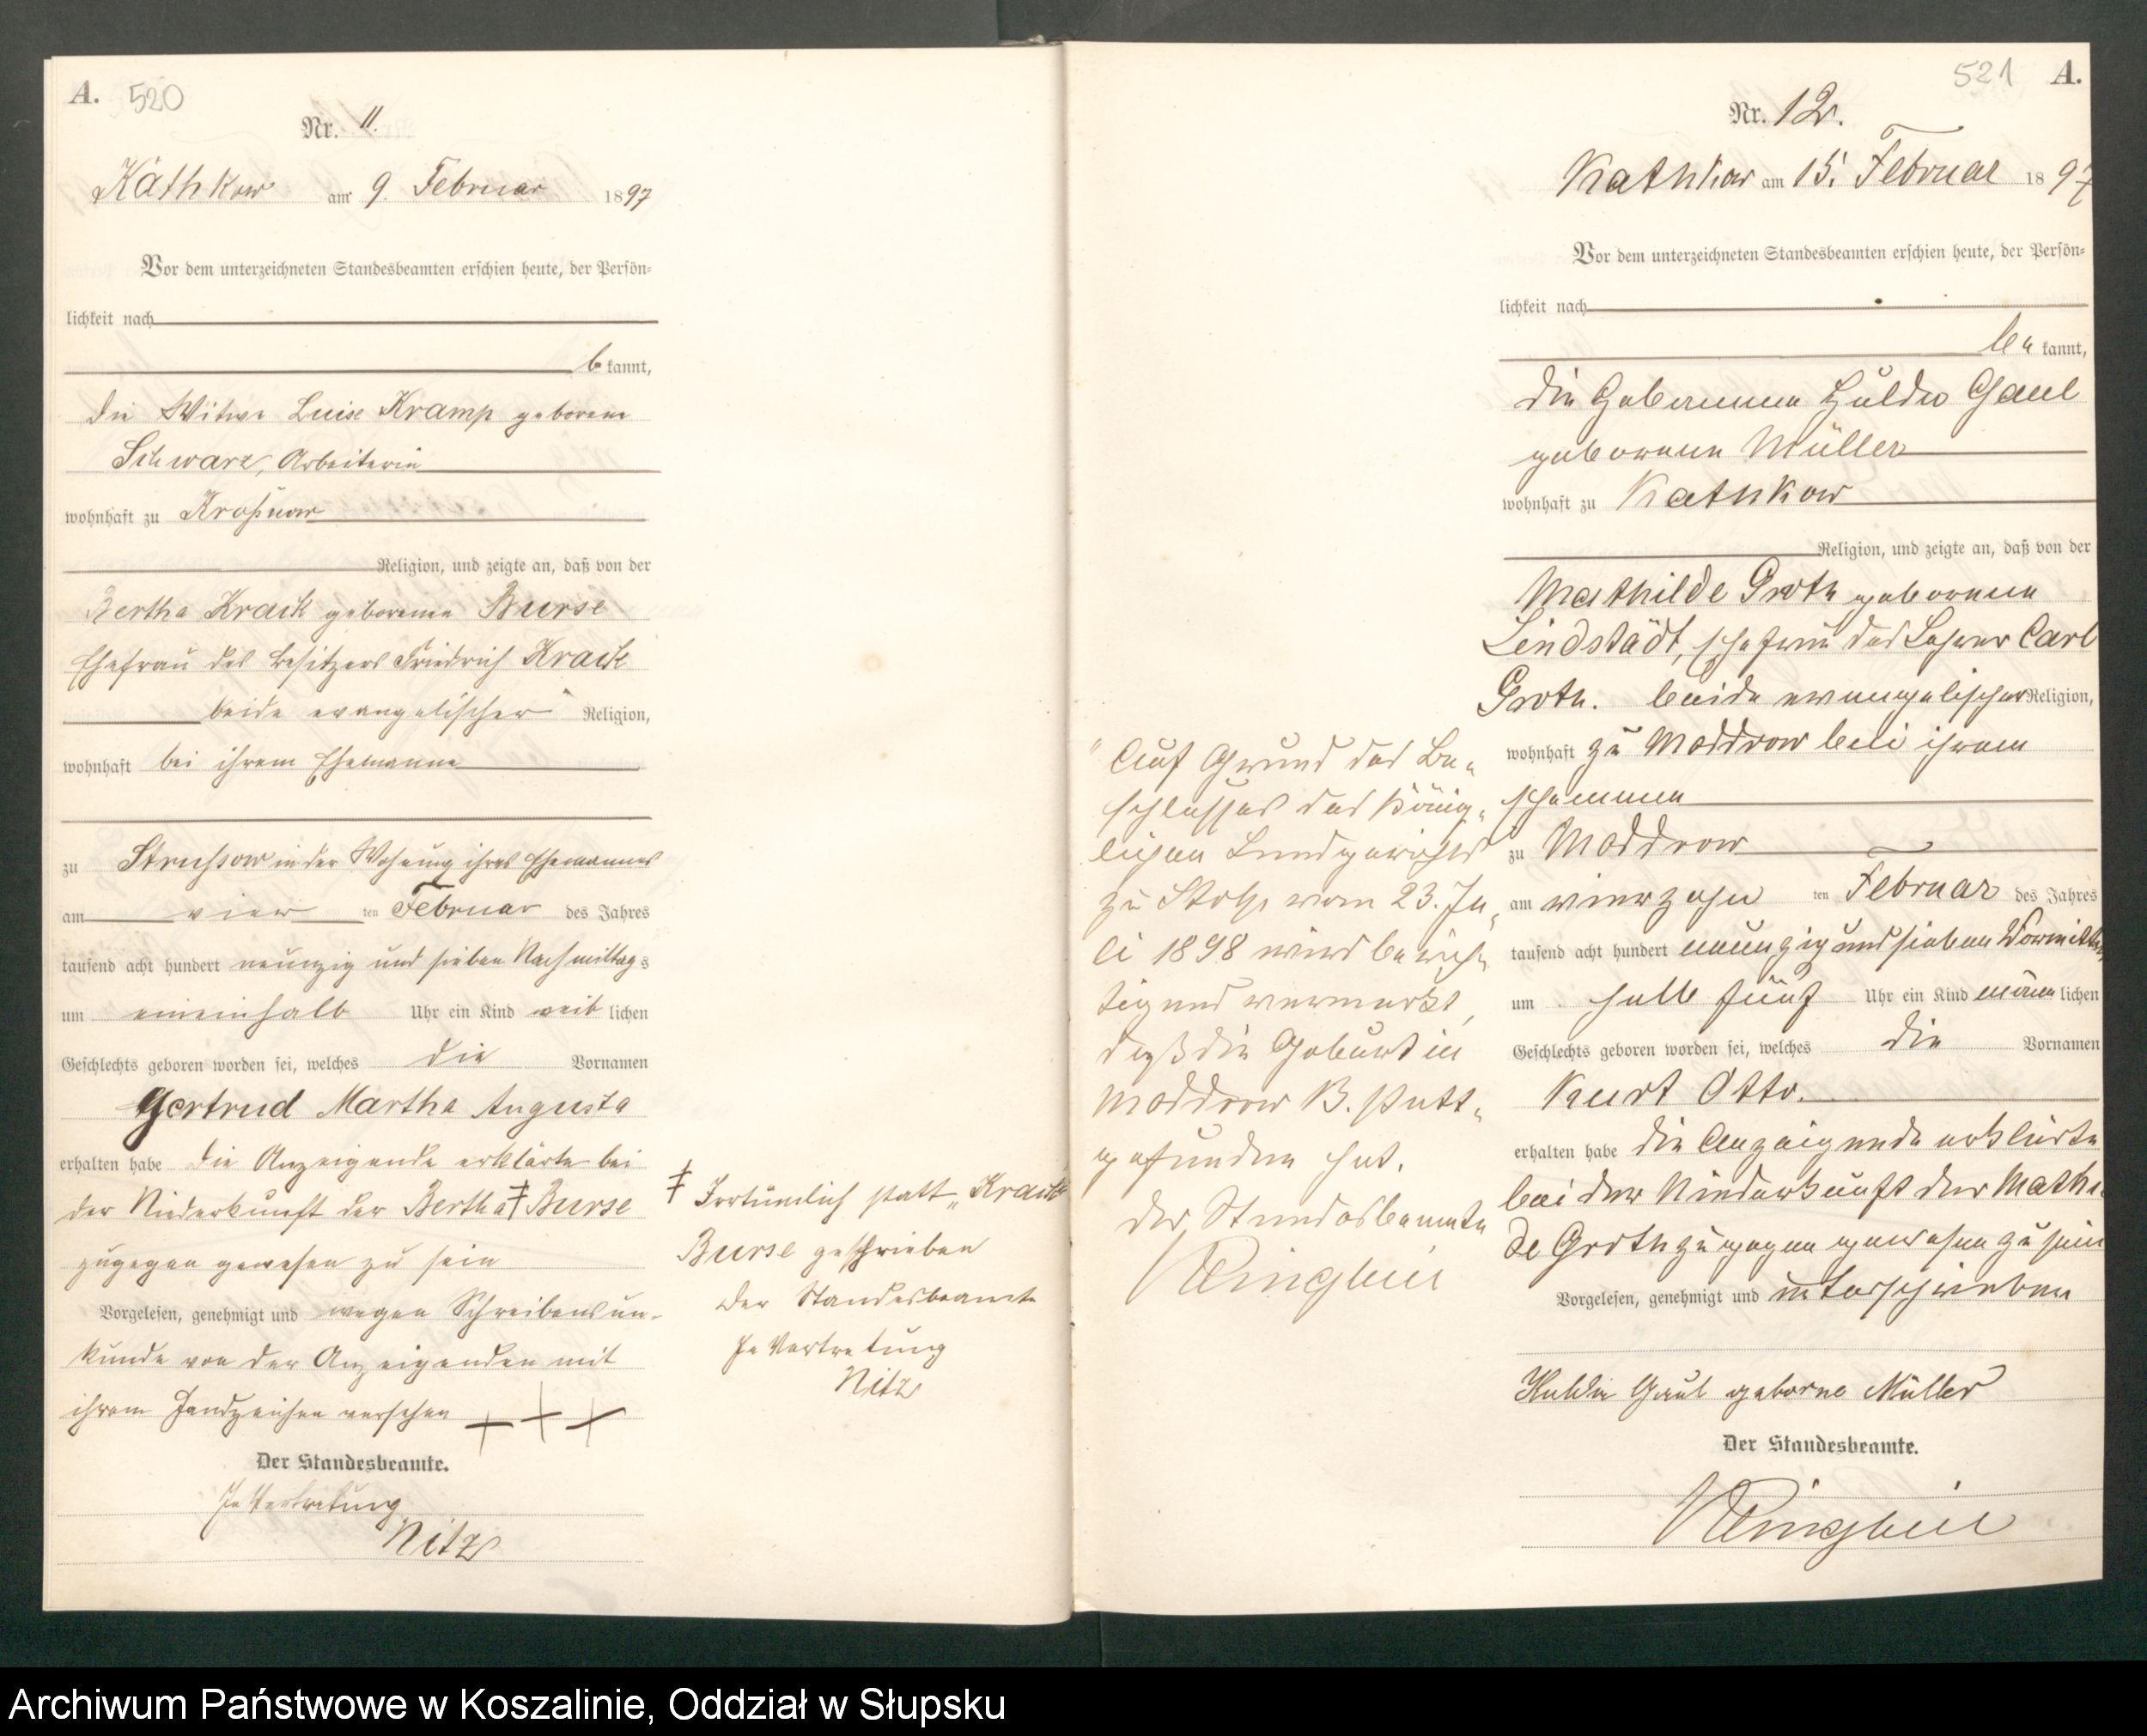 A. 520
Nr. 11.
Käthkow am 9. Februar 1897
Vor dem unterzeichneten Standesbeamten erschien heute, der Persön-
lichkeit nach
b kannt,
die Witwe Luise Kramp geborene
Schwarz, Arbeiterin
wohnhaft zu Kroßnow
Religion, und zeigte an, daß von der
Bertha Kraik geborene Burse
Ehefrau des Besitzers Friedrich Kraik
beide evangelischer Religion,
wohnhaft bei ihrem Ehemanne
zu Strussow in der Wohnung ihres Ehemannes
am vier ten Februar des Jahres
tausend acht hundert neunzig und sieben Nachmittags
um eineinhalb Uhr ein Kind weib lichen
Geschlechts geboren worden sei, welches die Vornamen
Gertrud Martha Augusta
erhalten habe die Anzeigende erklärte bei
der Niederkunft der Bertha ǂ Burse
zugegen gewesen zu sein
Vorgelesen, genehmigt und wegen Schreibensun-
kunde von der Anzeigenden mit
ihrem Handzeichen versehen + + +
Der Standesbeamte.
In Vertretung
Nitz
ǂ Irrtümlich statt „Kraik
Burse geschrieben
Der Standesbeamte
In Vertretung
Nitz
521 A.
Nr. 12.
Kathkow am 15. Februar 1897
Vor dem unterzeichneten Standesbeamten erschien heute, der Persön-
lichkeit nach
be kannt,
die Hebamme Hulda Gaul
geborene Müller
wohnhaft zu Kathkow
Religion, und zeigte an, daß von der
Mathilde Groth geborene
Lindstädt, Ehefrau des Lehrer Carl
Groth. beide evangelischer Religion,
wohnhaft zu Moddrow bei ihrem
Ehemann
zu Moddrow
am vierzehn ten Februar des Jahres
tausend acht hundert neunzig und sieben Vormittags
um halb fünf Uhr ein Kind männ lichen
Geschlechts geboren worden sei, welches die Vornamen
Kurt Otto.
erhalten habe die Anzeigende erklärte
bei der Niederkunft der Mathil
de Groth zugegen gewesen zu sein
Vorgelesen, genehmigt und unterschrieben
Hulda Gaul geborne Müller
Der Standesbeamte.
Auf Grund des Be-
schlusses des König-
lichen Landgerichts
zu Stolp vom 23. Ju-
li 1898 wird berich-
tigend vermerkt,
daß die Geburt in
Moddrow B. statt-
gefunden hat.
Der Standesbeamte
Archiwum Państwowe w Koszalinie, Oddział w Słupsku